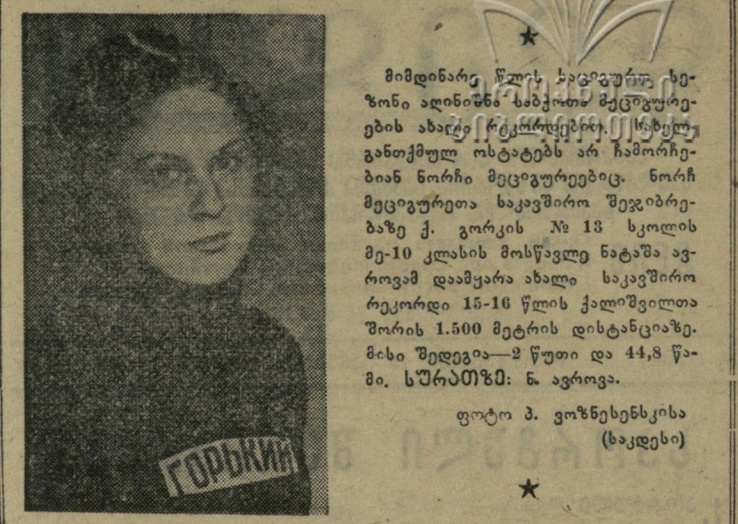 ★
მიმდინარე წლის საციგურო სე-
ზონი აღინიშნა საბჭოთა მეციგურე-
ების ახალი რეკორდებით. სახელ-
განთქმულ ოსტატებს არ ჩამორჩე-
ბიან ნორჩი მეციგურეებიც. ნორჩ
მეციგურეთა საკავშირო შეჯიბრე-
ბაზე ქ. გორკის № 13 სკოლის
მე-10 კლასის მოსწავლე ნატაშა ავ-
როვამ დაამყარა ახალი საკავშირო
რეკორდი 15-16 წლის ქალიშვილთა
შორის 1.500 მეტრის დისტანციაზე.
მისი შედეგია—2 წუთი და 44,8 წა-
მი. სურათზე: ნ. ავროვა.
ფოტო პ. ვოზნესენსკისა
(საკდესი)
★
ГОРЬКИЙ